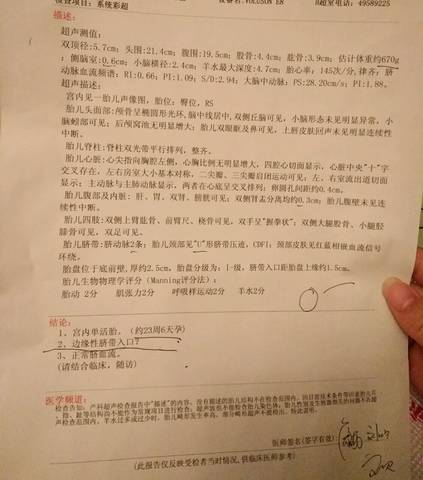 检查项目：系统彩超 设备名:VOLUSON E8 B超室电话：49589225
描述:
超声测值:
双顶径:5.7cm；头围:21.4cm；腹围:19.5cm；股骨:4.4cm；肱骨:3.9cm；估计体重约670g
；侧脑室:0.6cm；小脑横径:2.4cm；羊水最大深度:4.7cm；胎心率：145次/分,律齐；脐
动脉血流频谱：RI:0.66；PI:1.09；S/D:2.94；大脑中动脉：PS:28.20cm/s；PI:1.88。
超声描述:
宫内见一胎儿声像图，胎位：臀位，RS
胎儿头面部：颅骨呈椭圆形光环,脑中线居中,双侧丘脑可见，小脑形态未见明显异常，小
脑蚓部可见；后颅窝池无明显增大；胎儿双眼眶及鼻可见，上唇皮肤回声未见明显连续性
中断。
胎儿脊柱:脊柱双光带平行排列，整齐。
胎儿心脏:心尖指向胸腔左侧，心胸比例无明显增大，四腔心切面显示，心脏中央"十"字
交叉存在，左右房室大小基本对称，二尖瓣、三尖瓣启闭运动可见；左、右室流出道切面
显示：主动脉与主肺动脉显示，两者在心底呈交叉排列；卵圆孔间距约0.4cm。
胎儿腹部及内脏：肝、胃、双肾、膀胱可见；双侧肾盂分离均约0.3cm；胎儿腹壁未见连
续性中断。
胎儿四肢:双侧上臂肱骨、前臂尺、桡骨可见，双手呈"握拳状"；双侧大腿股骨、小腿胫
腓骨可见，双足可见。
胎儿脐带:脐动脉2条；胎儿颈部见"U"形脐带压迹，CDFI：颈部皮肤见红蓝相嵌血流信号
环绕。
胎盘位于底前壁,厚约2.5cm，胎盘分级为：Ⅰ-级，脐带入口距胎盘上缘约1.5cm。
胎儿生物物理学评分（Manning评分法）：
胎动 2分 肌张力2分 呼吸样运动2分 羊水2分
结论:
1、宫内单活胎。（约23周6天孕）
2、边缘性脐带入口？
3、正常脐血流。
(请结合临床，随访)
医学频道:
医师签名(签字有效)
(此报告仅反映受检者当时情况,供临床医师参考)